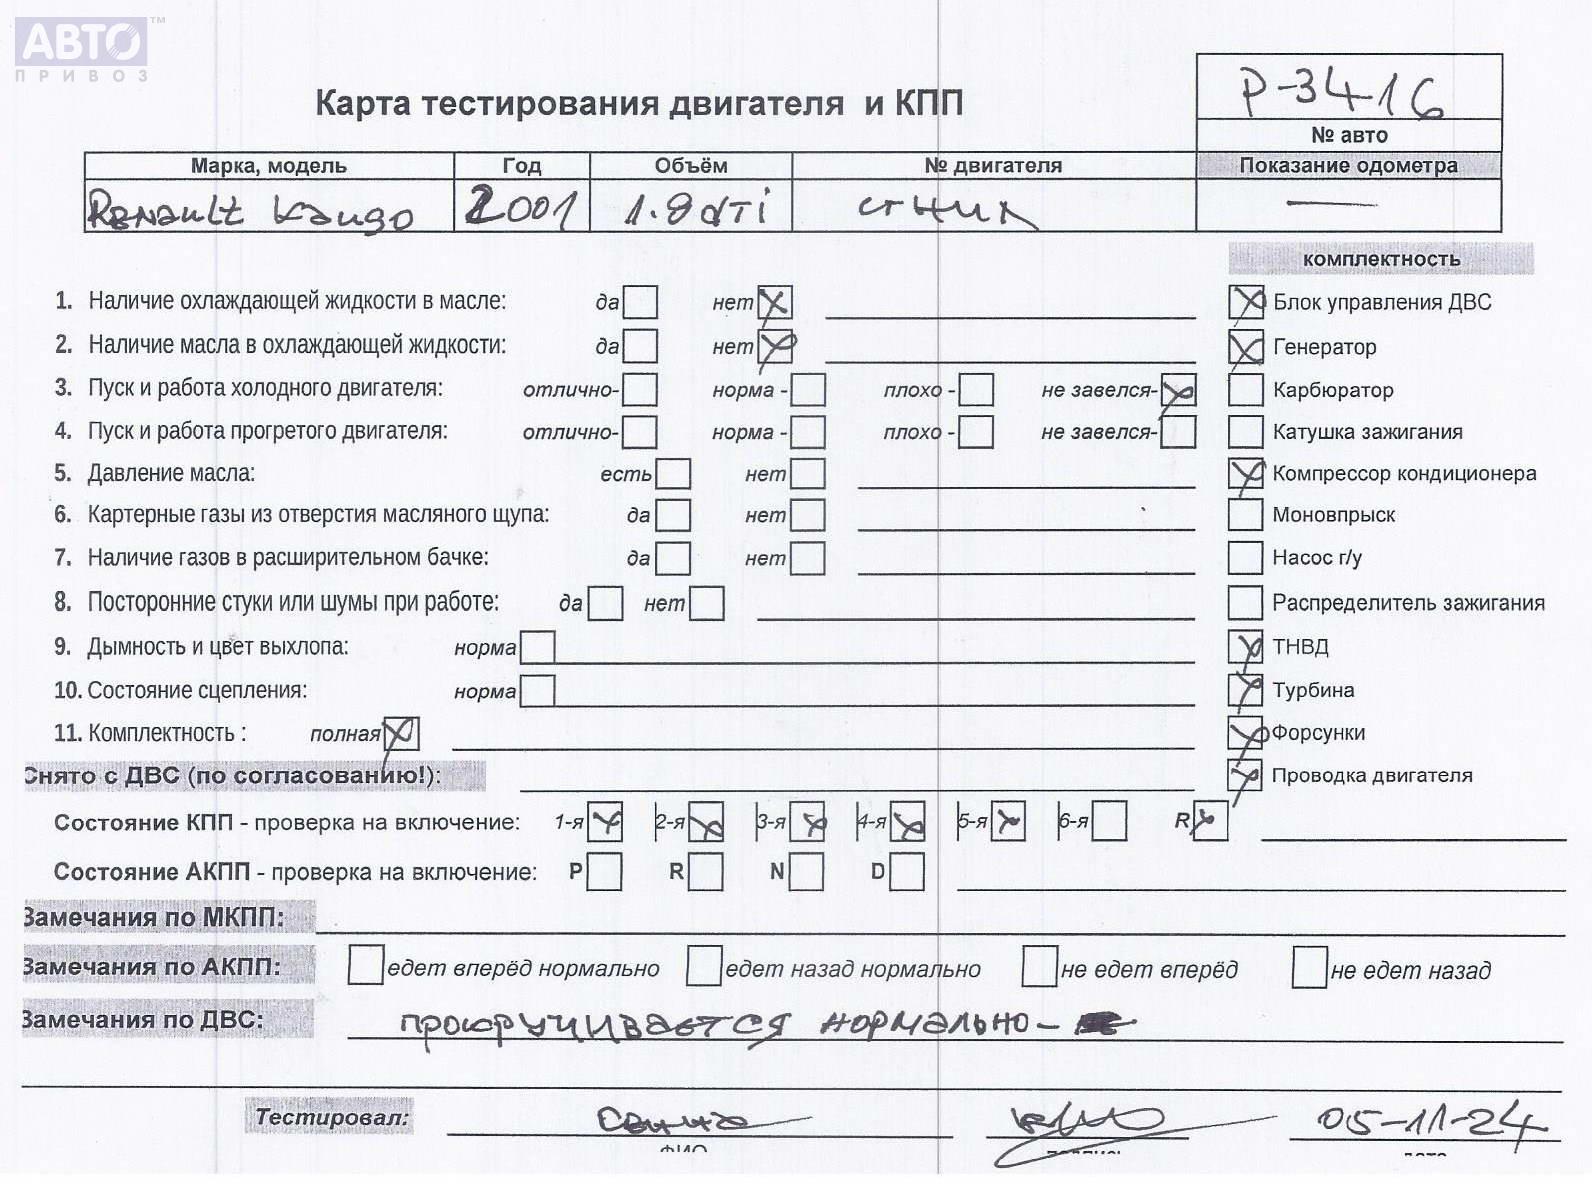 АВТО™
ПРИВОЗ
Карта тестирования двигателя и КПП
P-3416
№ авто
Марка, модель Год Объём № двигателя Показание одометра
Renault Kango 2001 1.9 dTi сгнил —
комплектность
1. Наличие охлаждающей жидкости в масле: да нет Блок управления ДВС
2. Наличие масла в охлаждающей жидкости: да нет Генератор
3. Пуск и работа холодного двигателя: отлично- норма - плохо - не завелся- Карбюратор
4. Пуск и работа прогретого двигателя: отлично- норма - плохо - не завелся- Катушка зажигания
5. Давление масла: есть нет Компрессор кондиционера
6. Картерные газы из отверстия масляного щупа: да нет Моновпрыск
7. Наличие газов в расширительном бачке: да нет Насос г/у
8. Посторонние стуки или шумы при работе: да нет Распределитель зажигания
9. Дымность и цвет выхлопа: норма ТНВД
10. Состояние сцепления: норма Турбина
11. Комплектность : полная Форсунки
Снято с ДВС (по согласованию!): Проводка двигателя
Состояние КПП - проверка на включение: 1-я 2-я 3-я 4-я 5-я 6-я R
Состояние АКПП - проверка на включение: P R N D
Замечания по МКПП:
Замечания по АКПП: едет вперёд нормально едет назад нормально не едет вперёд не едет назад
Замечания по ДВС: прокручивается нормально-
Тестировал: 05-11-24
ФИО подпись дата